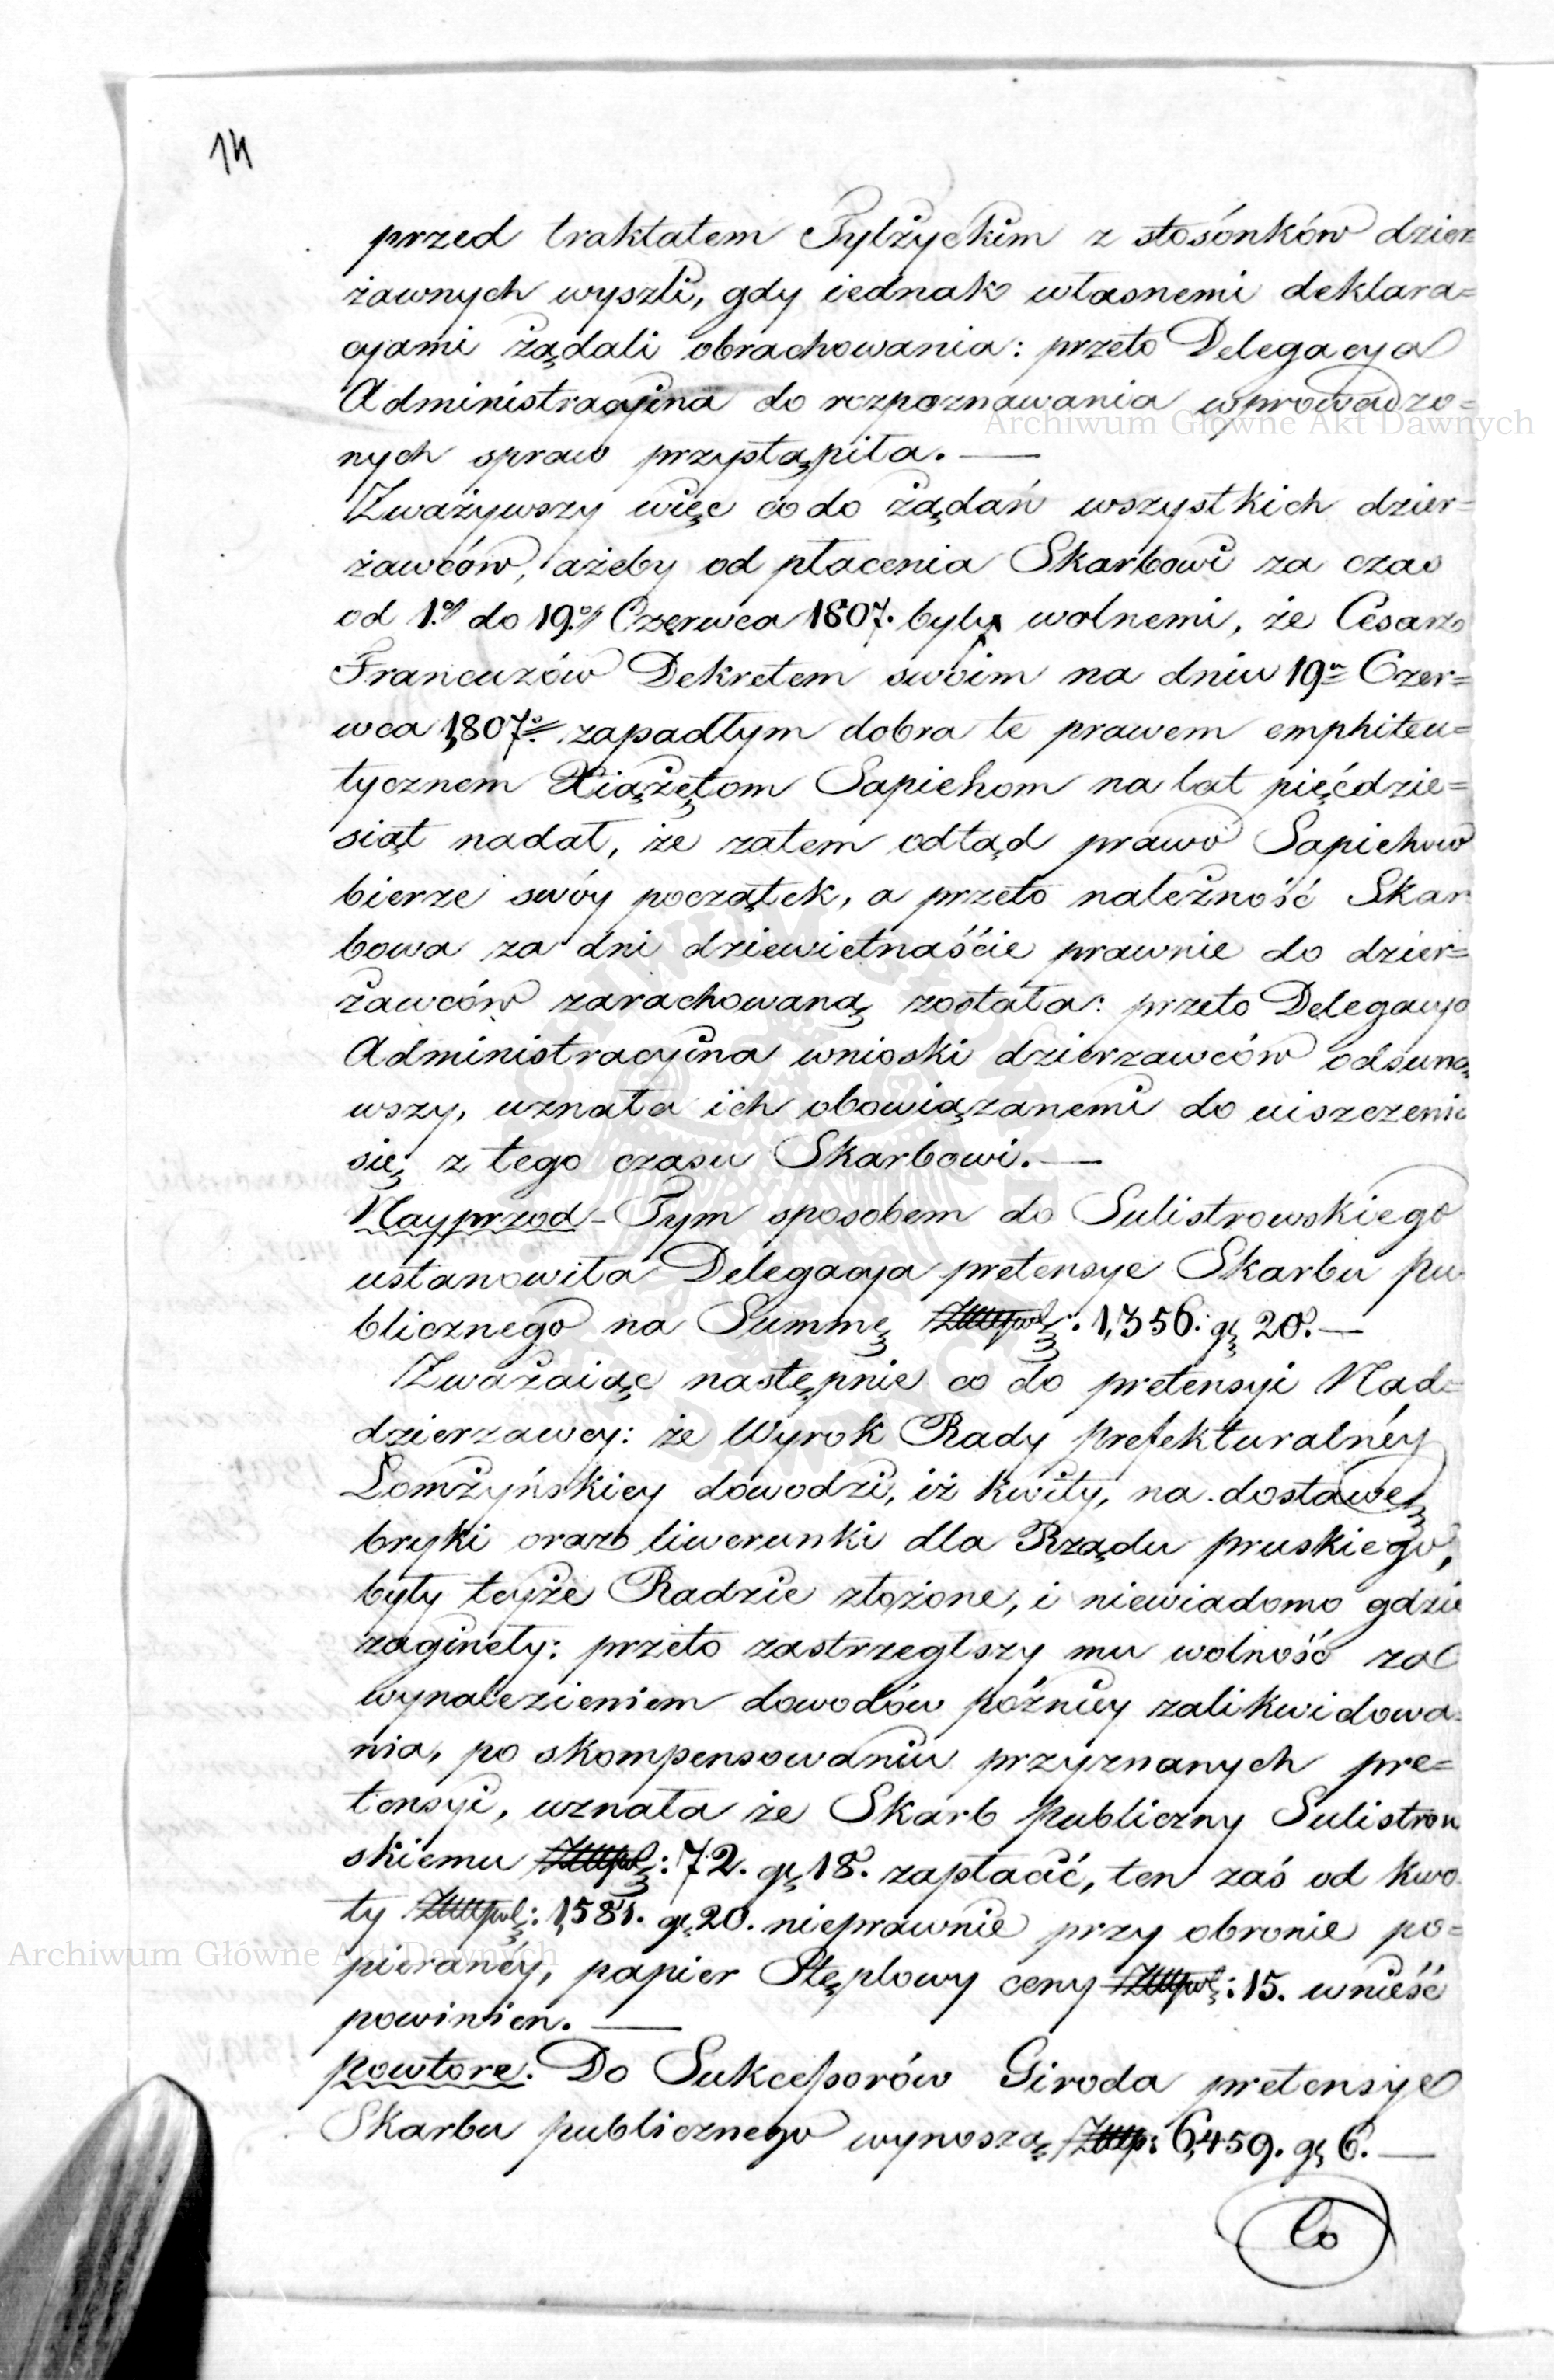 14
przed traktatem Tylżyckim z stosónków dzier=
żawnych wyszli, gdy iednak własnemi deklara=
cyami żądali obrachowania: przeto Delegacya
Administracyina do rozpoznawania wprowadzo=
nych spraw przystąpiła. —
Zważywszy więc co do żądań wszystkich dzier=
żawców, ażeby od płacenia Skarbowi za czas
od 1.º do 19.º Czerwca 1807. byli wolnemi, że Cesarz
Francuzów Dekretem swoim na dniu 19ⁿ Czer=
wca 1,807º zapadłym dobra te prawem emphiteu=
tycznem Xiążętom Sapiehom na lat pięćdzie=
siąt nadał, że zatem odtąd prawo Sapiehow
bierze swóy początek, a przeto należność Skar
bowa za dni dziewietnaście prawnie do dzier=
żawców zarachowaną została: przeto Delegacya
Administracyina wnioski dzierzawców odsuną
wszy, uznała ich obowiązanemi do uiszczenia
się z tego czasu Skarbowi. —
Nayprzod – Tym sposobem do Sulistrowskiego
ustanowiła Delegacya pretensye Skarbu pu
blicznego na Summę Złłpol: 1,356: gę 20. —
Zważaiąc następnie co do pretensyi Nad=
dzierzawcy: że Wyrok Rady prefekturalnéy
Łomżyńskiey dowodzi, iż kwity, na dostawę
bryki oraz liwerunki dla Rządu pruskiego,
były teyże Radzie złożone, i niewiadomo gdzie
zaginęły: przeto zastrzegłszy mu wolność za
wynalezieniem dowodów późniey zalikwidowa=
nia, po skompensowaniu przyznanych pre=
tensyi, uznała że Skarb publiczny Sulistrow
skiemu Złłpol: 72. gę 18. zapłacić, ten zaś od kwo
ty Złłpol: 1,581. gę 20. nieprawnie przy obronie po=
pieranéy, papier Stęplowy ceny Złłpol: 15. wnieść
powinien. —
powtore. Do Sukcessorów Giroda pretensye
Skarbu publicznego wynoszą Złłp: 6,459. gę 6. —
Co
Archiwum Główne Akt Dawnych
Archiwum Główne Akt Dawnych